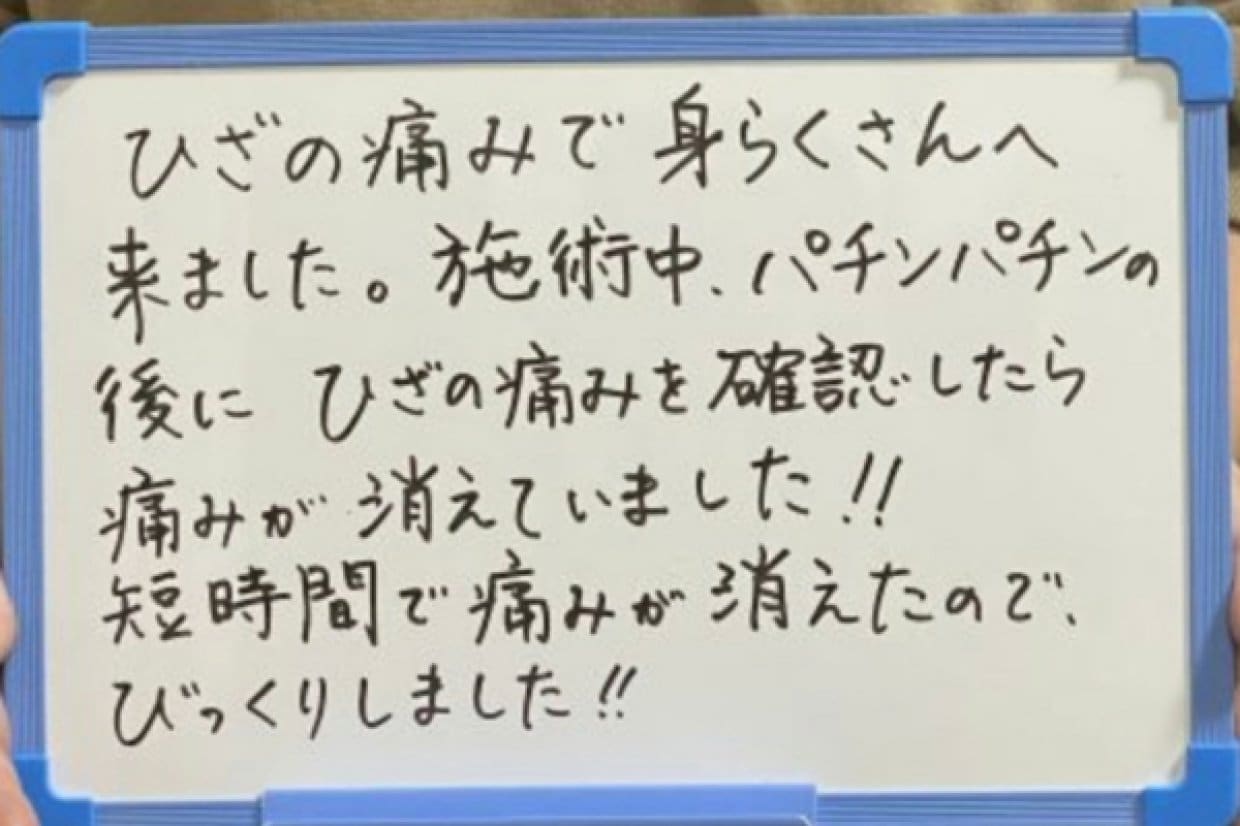 ひざの痛みで身らくさんへ
来ました。施術中、パチンパチンの
後に ひざの痛みを確認したら
痛みが消えていました!!
短時間で痛みが消えたので、
びっくりしました!!